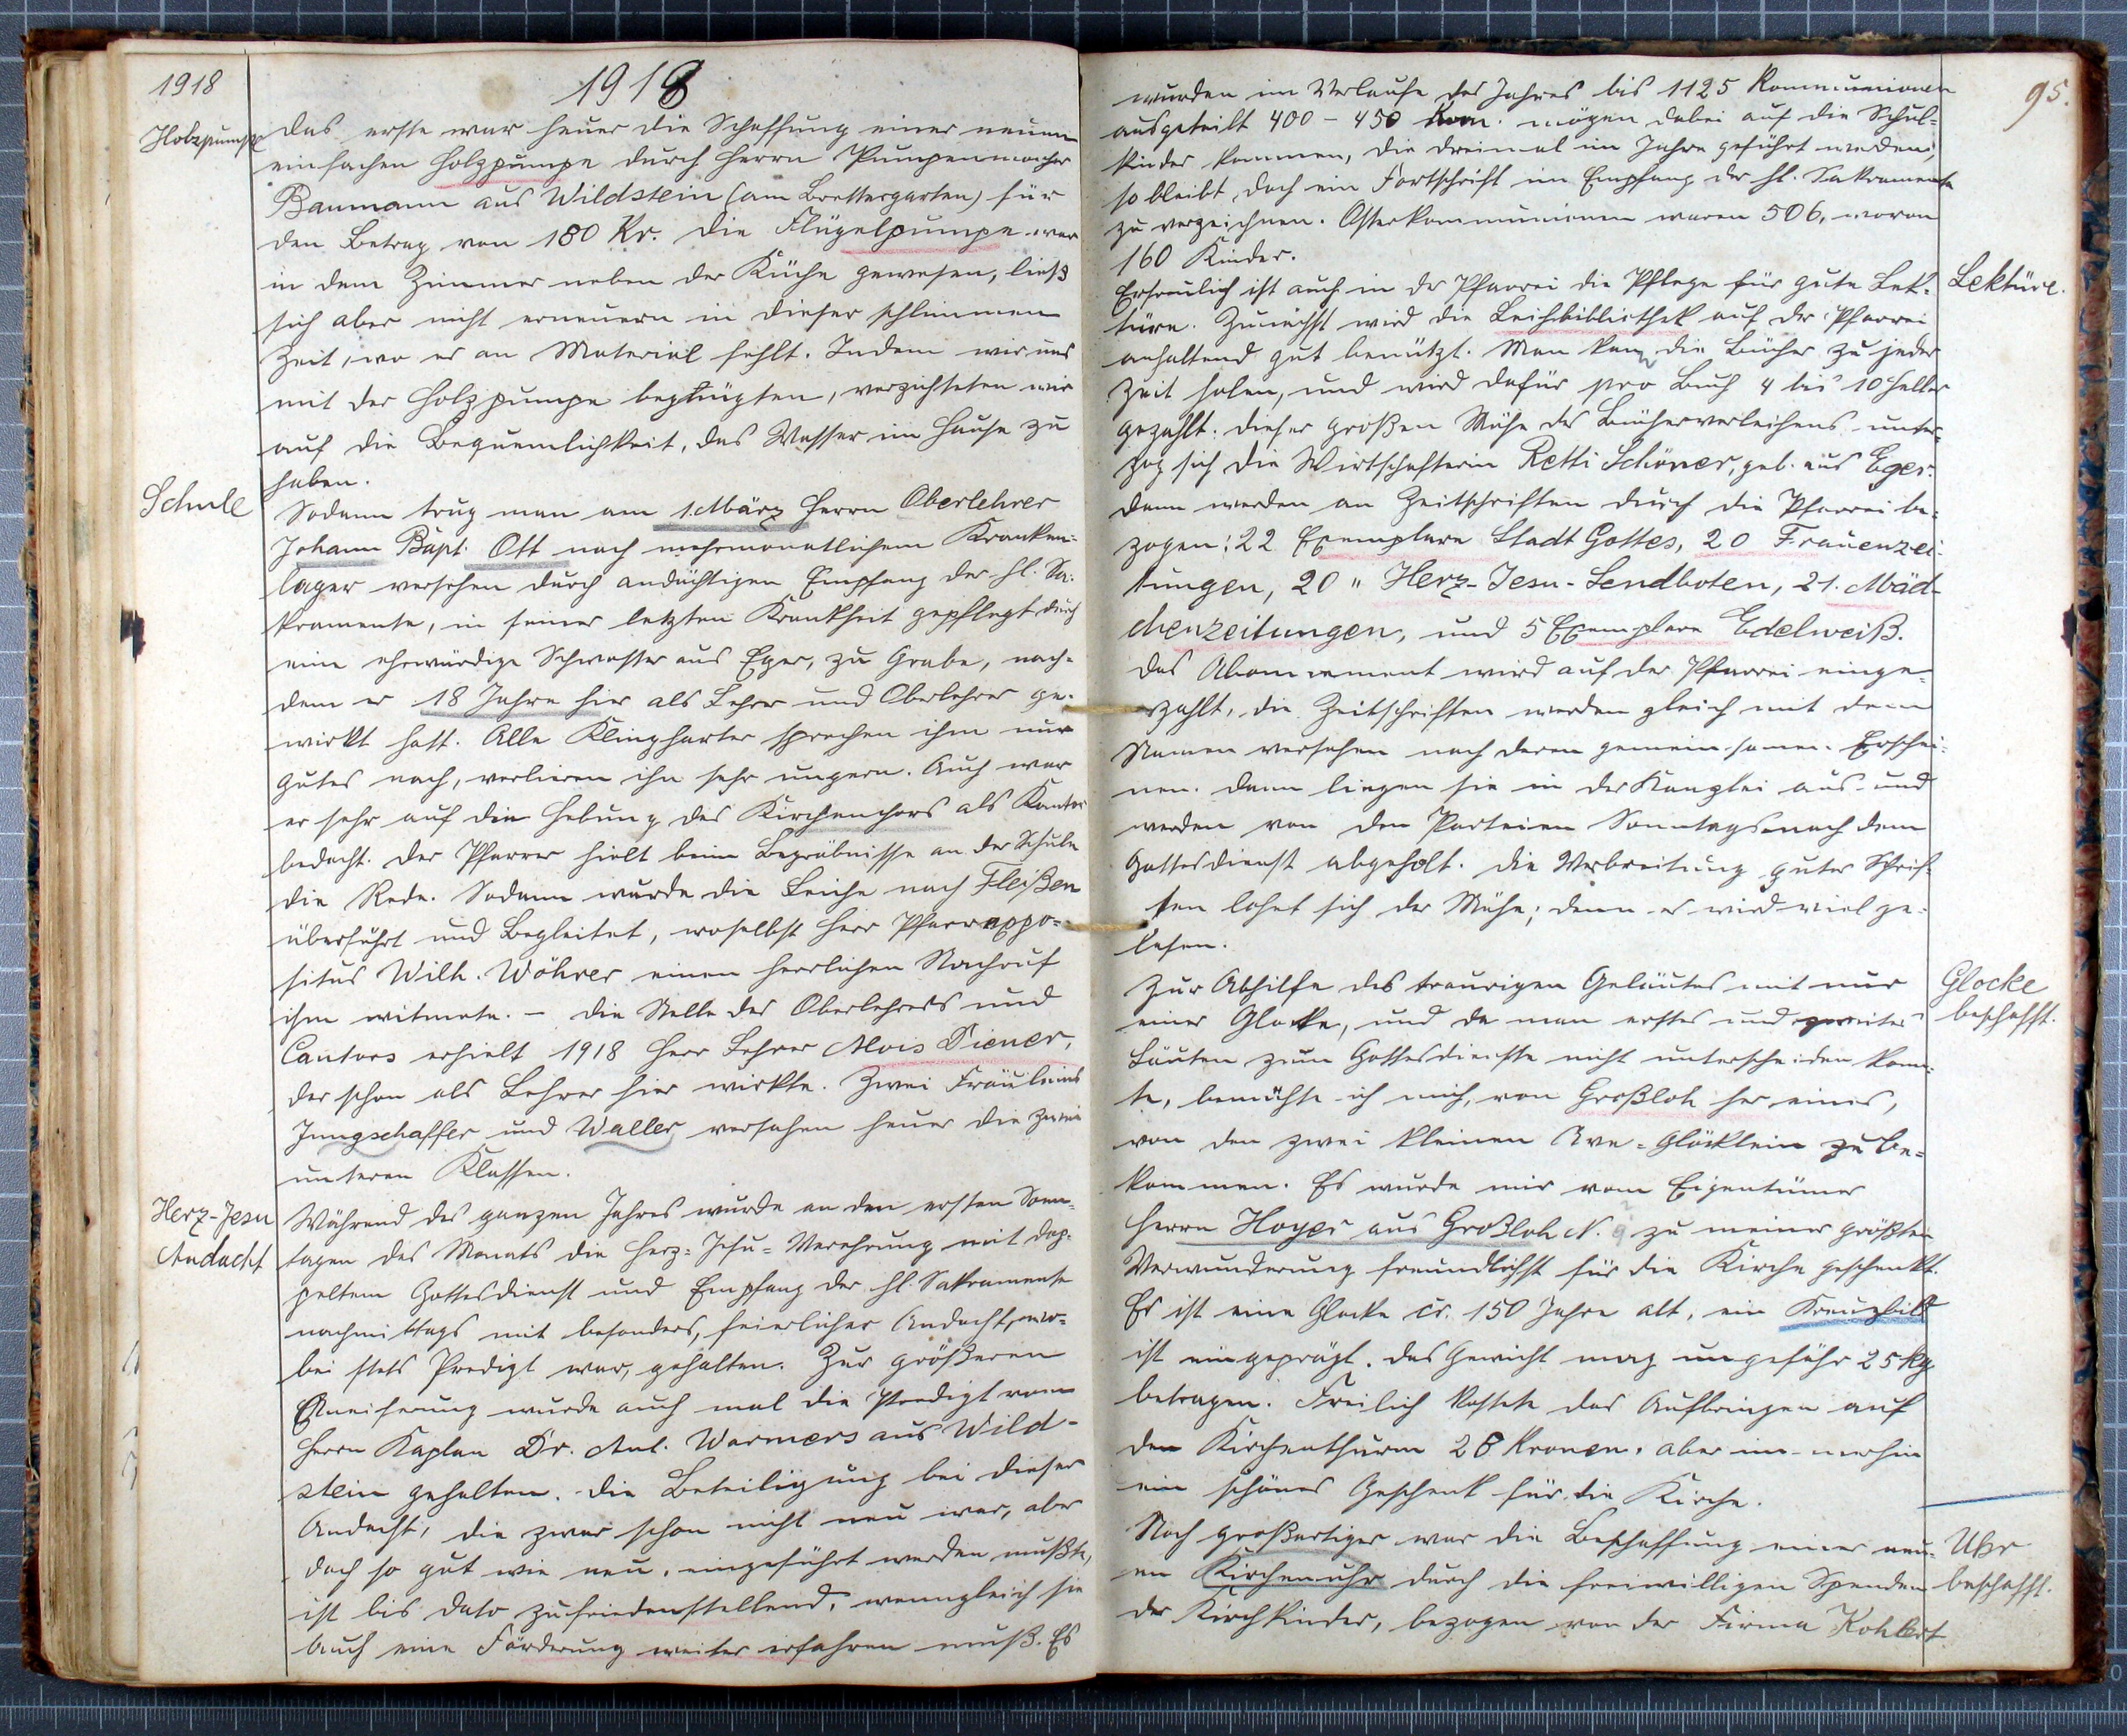 1918
1918
Holzpumpe
Das erste war heuer die Schaffung einer neuen
einfachen Holzpumpe durch Herrn Pumpenmacher
Baumann aus Wildstein (am Brettergarten) für
den Betrag von 180 Kr. Die Flügelpumpe war
in dem Zimmer neben der Küche gewesen, ließ
sich aber nicht erneuern in dieser schlimmen
Zeit, wo es an Material fehlt. Indem wir uns
mit der Holzpumpe begnügten, verzichteten wir
auf die Bequemlichkeit, das Wasser im Hause zu
haben.
Schule
Sodann trug man am 1. März Herrn Oberlehrer
Johann Bapt. Ott nach mehrmonatlichem Kranken-
lager versehen durch andächtigen Empfang der hl. Sa-
kramente, in seiner letzten Krankheit gepflegt durch
eine ehrwürdige Schwester aus Eger, zu Grabe, nach-
dem er 18 Jahre hier als Lehrer und Oberlehrer ge-
wirkt hatt. Alle Klingharter sprechen ihm nur
gutes nach, verlieren ihn sehr ungern. Auch war
er sehr auf die Hebung des Kirchenchors als Kantor
bedacht. Der Pfarrer hielt beim Begräbnisse an der Schule
die Rede. Sodann wurde die Leiche nach Fleißen
überführt und begleitet, woselbst Herr Pfarrexpo-
situs Wilh. Wöhrer einen herrlichen Nachruf
ihm witmete. – Die Stelle des Oberlehrers und
Cantors erhielt 1918 Herr Lehrer Alois Diener,
der schon als Lehrer hier wirkte. Zwei Fräuleins
Jungschaffer und Waller versahen heuer die zwei
unteren Klassen.
Herz-Jesu
Andacht
Während des ganzen Jahres wurde an den ersten Sonn-
tagen des Monats die Herz-Jesu-Verehrung mit dop-
peltem Gottesdienst und Empfang der hl. Sakramente
nachmittags mit besonders, feierlicher Andacht, wo-
bei stets Predigt war, gehalten. Zur größeren
Aneiferung wurde auch mal die Predigt vom
Herrn Kaplan Dr. Ant. Warmers aus Wild-
stein gehalten. Die Beteiligung bei dieser
Andacht, die zwar schon nicht neu war, aber
doch so gut wie neu, eingeführt werden mußte,
ist bis dato zufriedenstellend, wenngleich sie
auch eine Förderung weiter erfahren muß. Es
95.
wurden im Verlaufe des Jahres bis 1125 Kommunionen
ausgeteilt 400 – 450 Kom. mögen dabei auf die Schul-
kinder kommen, die dreimal im Jahre geführt werden,
so bleibt doch ein Fortschritt im Empfang der hl. Sakramente
zu verzeichnen. Osterkommunionen waren 506, wovon
160 Kinder.
Lektüre.
Erfreulich ist auch in der Pfarrei die Pflege für gute Lek-
türe. Zunächst wird die Leihbibliothek auf der Pfarrei
anhaltend gut benützt. Man kann die Bücher zu jeder
Zeit holen, und wird dafür pro Buch 4 bis 10 Heller
gezahlt. Dieser großen Mühe des Bücherverleihens unter-
zog sich die Wirtschafterin Retti Schöner, geb. aus Eger.
Dann werden an Zeitschriften durch die Pfarrei be-
zogen: 22 Exemplare Stadt Gottes, 20 Frauenzei-
tungen, 20 " Herz-Jesu-Sendboten, 21. Mäd-
chenzeitungen, und 5 Exemplare Edelweiß.
Das Abonnement wird auf der Pfarrei einge-
zahlt, die Zeitschriften werden gleich mit dem
Namen versehen nach deren gemeinsamen Erschei-
nen. Dann liegen sie in der Kanzlei aus und
werden von den Parteien Sonntags nach dem
Gottesdienst abgeholt. Die Verbreitung guter Schrif-
ten lohnt sich der Mühe; denn es wird viel ge-
lesen.
Glocke
beschafft.
Zur Abhilfe des traurigen Geläutes mit nur
einer Glocke, und da man erstes und zweites
Läuten zum Gottesdienste nicht unterscheiden konn-
te, bemühte ich mich, von Großloh her eines,
von den zwei kleinen Ave-Glöcklein zu be-
kommen. Es wurde mir vom Eigentümer
Herrn Hoyer aus Großloh N. 9 zu meiner größten
Verwunderung freundlichst für die Kirche geschenkt.
Es ist eine Glocke cr. 150 Jahre alt, ein Kreuzbild
ist eingeprägt. Das Gewicht mag ungefähr 25 kg
betragen. Freilich kostete das Aufbringen auf
den Kirchenthurm 28 Kronen, aber immerhin
ein schönes Geschenk für die Kirche.
Uhr
beschafft.
Noch großartiger war die Beschaffung einer neu-
en Kirchenuhr durch die freiwilligen Spenden
der Kirchkinder, bezogen von der Firma Kohlert